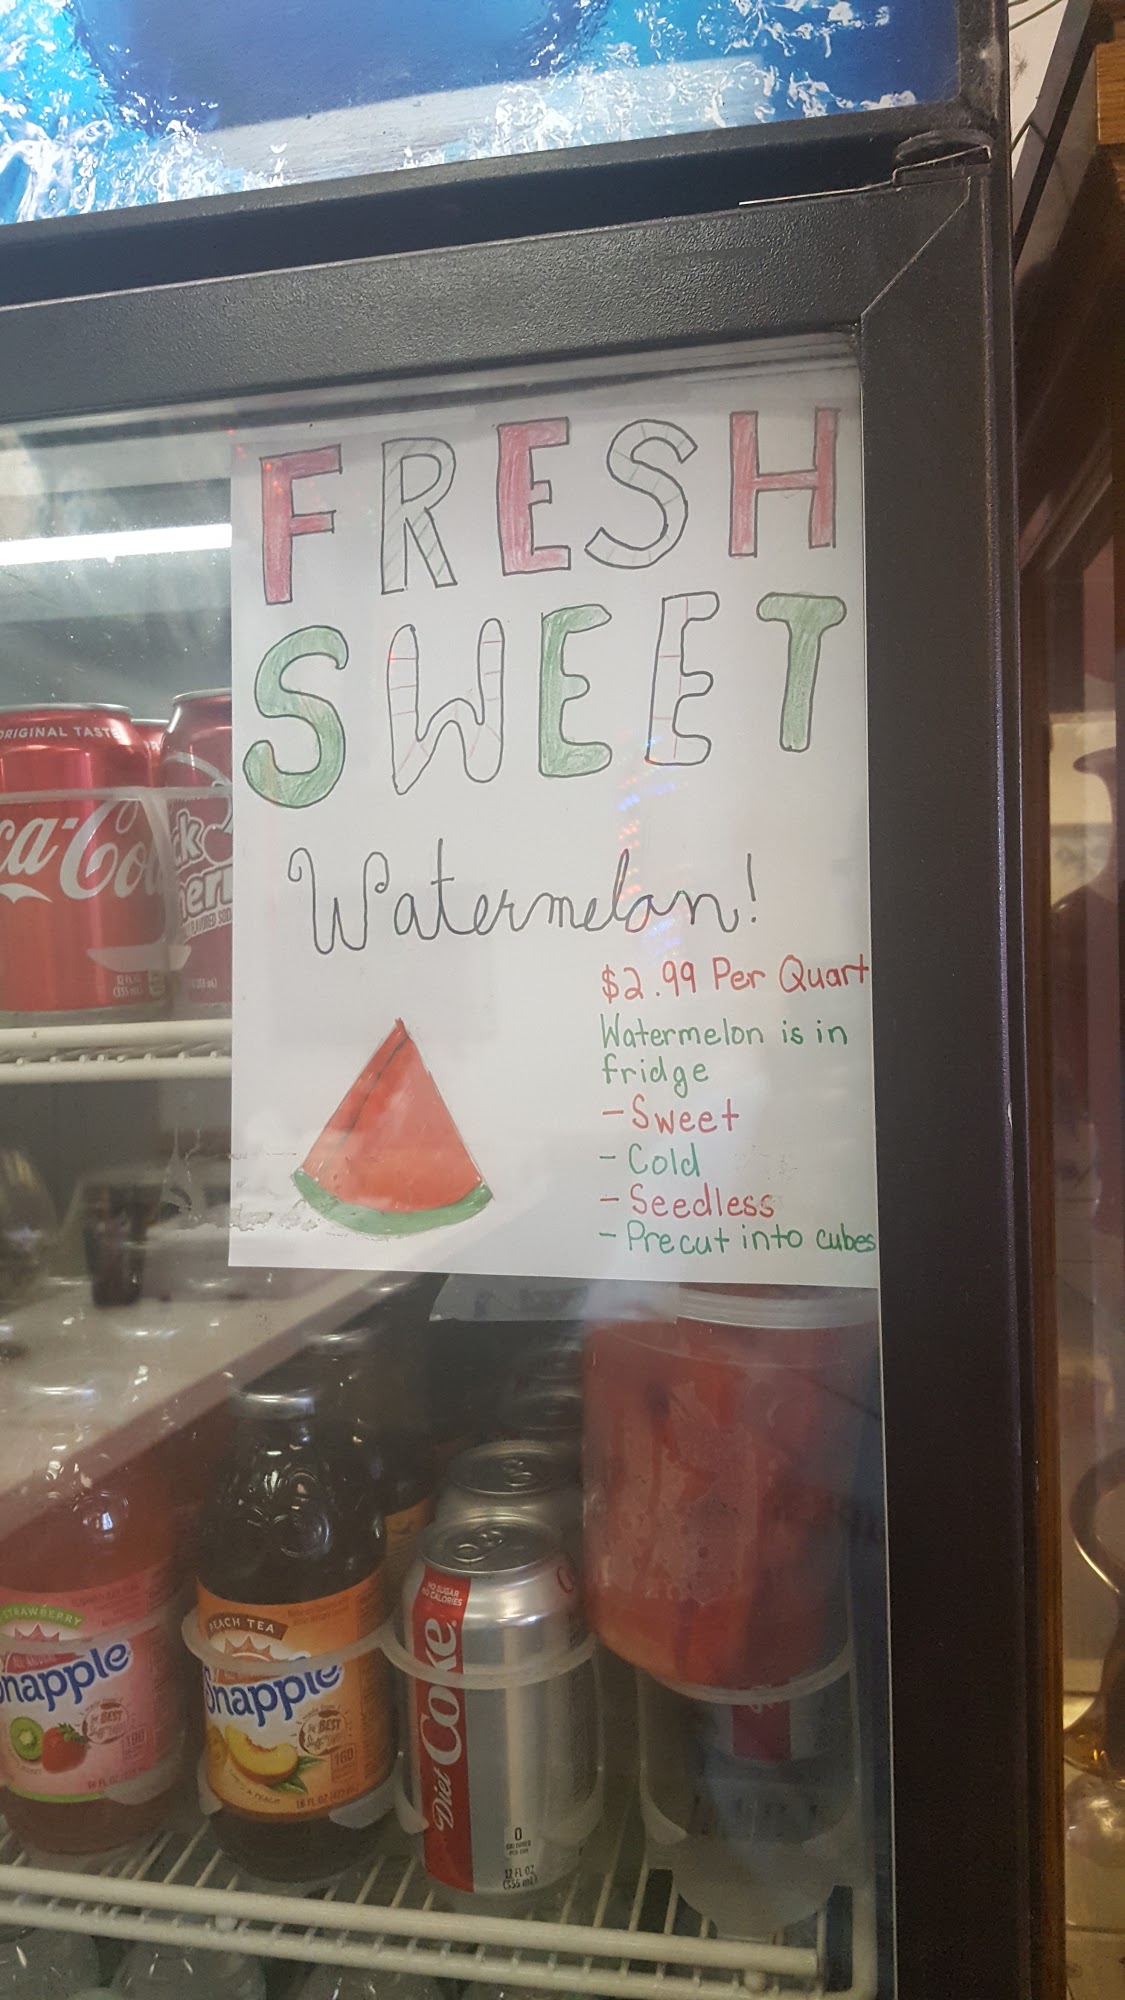 FRESH
SWEET
Watermelon!
$2.99 Per Quart
Watermelon is in
fridge
- Sweet
- Cold
- Seedless
- Precut into cubes
ORIGINAL TASTE
ca-Co
ck
her
12 FL
(355 mL)
STRAWBERRY
Snapple
BEST
190
16 FL OZ
PEACH TEA
Snapple
BEST
160
16 FL OZ
NO SUGAR
NO CALORIES
Diet Coke
0
CALORIES
12 FL OZ
(355 mL)